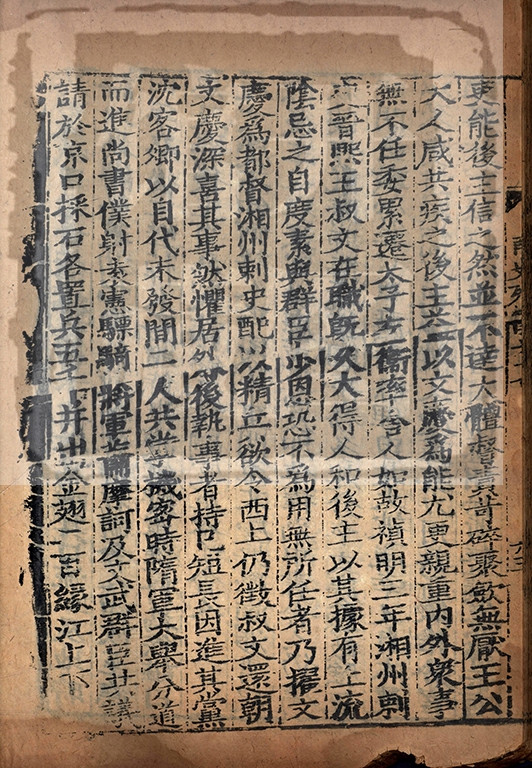 吏能後主信之然並不達大體督責苛碎聚斂無厭王公
大人咸共疾之後主益以文慶爲能尤更親重內外衆事
無不任委累遷太子左衞率舍人如故禎明三年湘州刺
史晉熙王叔文在職旣久大得人和後主以其據有上流
陰忌之自度素與群臣少恩恐不爲用無所任者乃擢文
慶爲都督湘州刺史配以精兵欲令西上仍徵叔文還朝
文慶深喜其事然懼居外後執事者持己短長因進其黨
沈客卿以自代未發間二人共掌機密時隋軍大舉分道
而進尚書僕射袁憲驃騎將軍蕭摩訶及文武群臣共議
請於京口採石各置兵五千并出金翅二百緣江上下